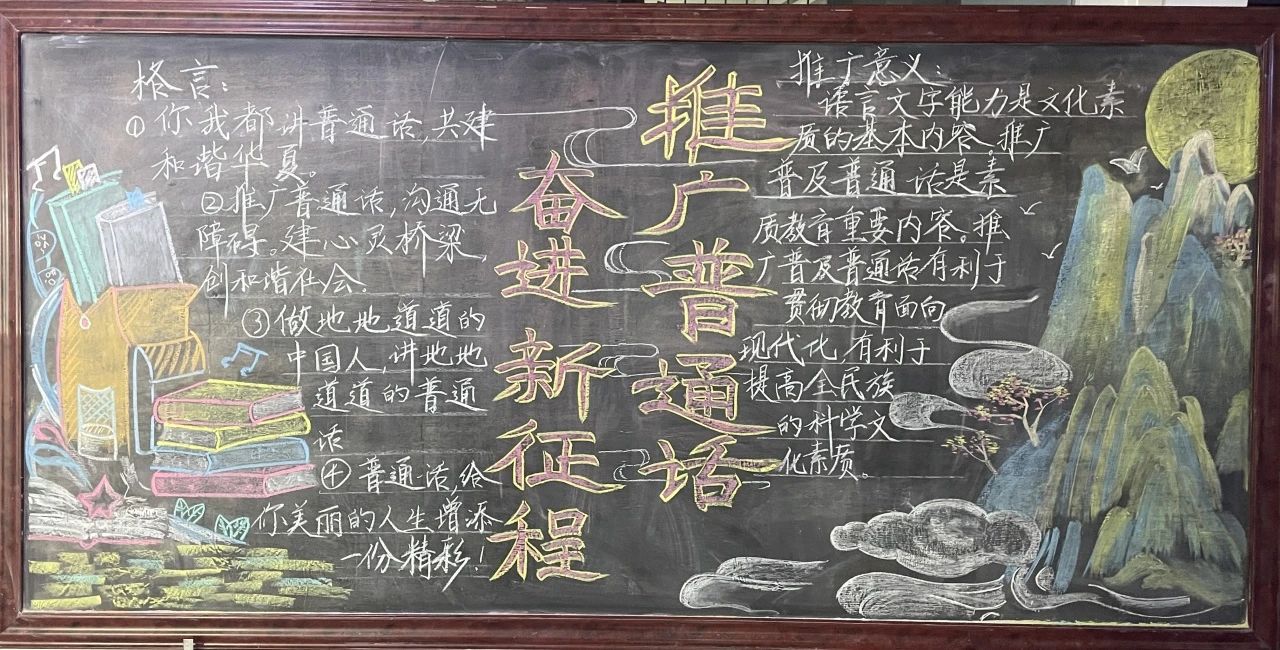 格言:
①你我都讲普通话,共建
和谐华夏。
②推广普通话,沟通无
障碍。建心灵桥梁,
创和谐社会.
③做地地道道的
中国人,讲地地
道道的普通
话
④普通话,给
你美丽的人生增添
一份精彩!
推广普通话
奋进新征程
推广意义:
语言文字能力是文化素
质的基本内容,推广
普及普通话是素
质教育重要内容。推
广普及普通话有利于
贯彻教育面向
现代化,有利于
提高全民族
的科学文
化素质。